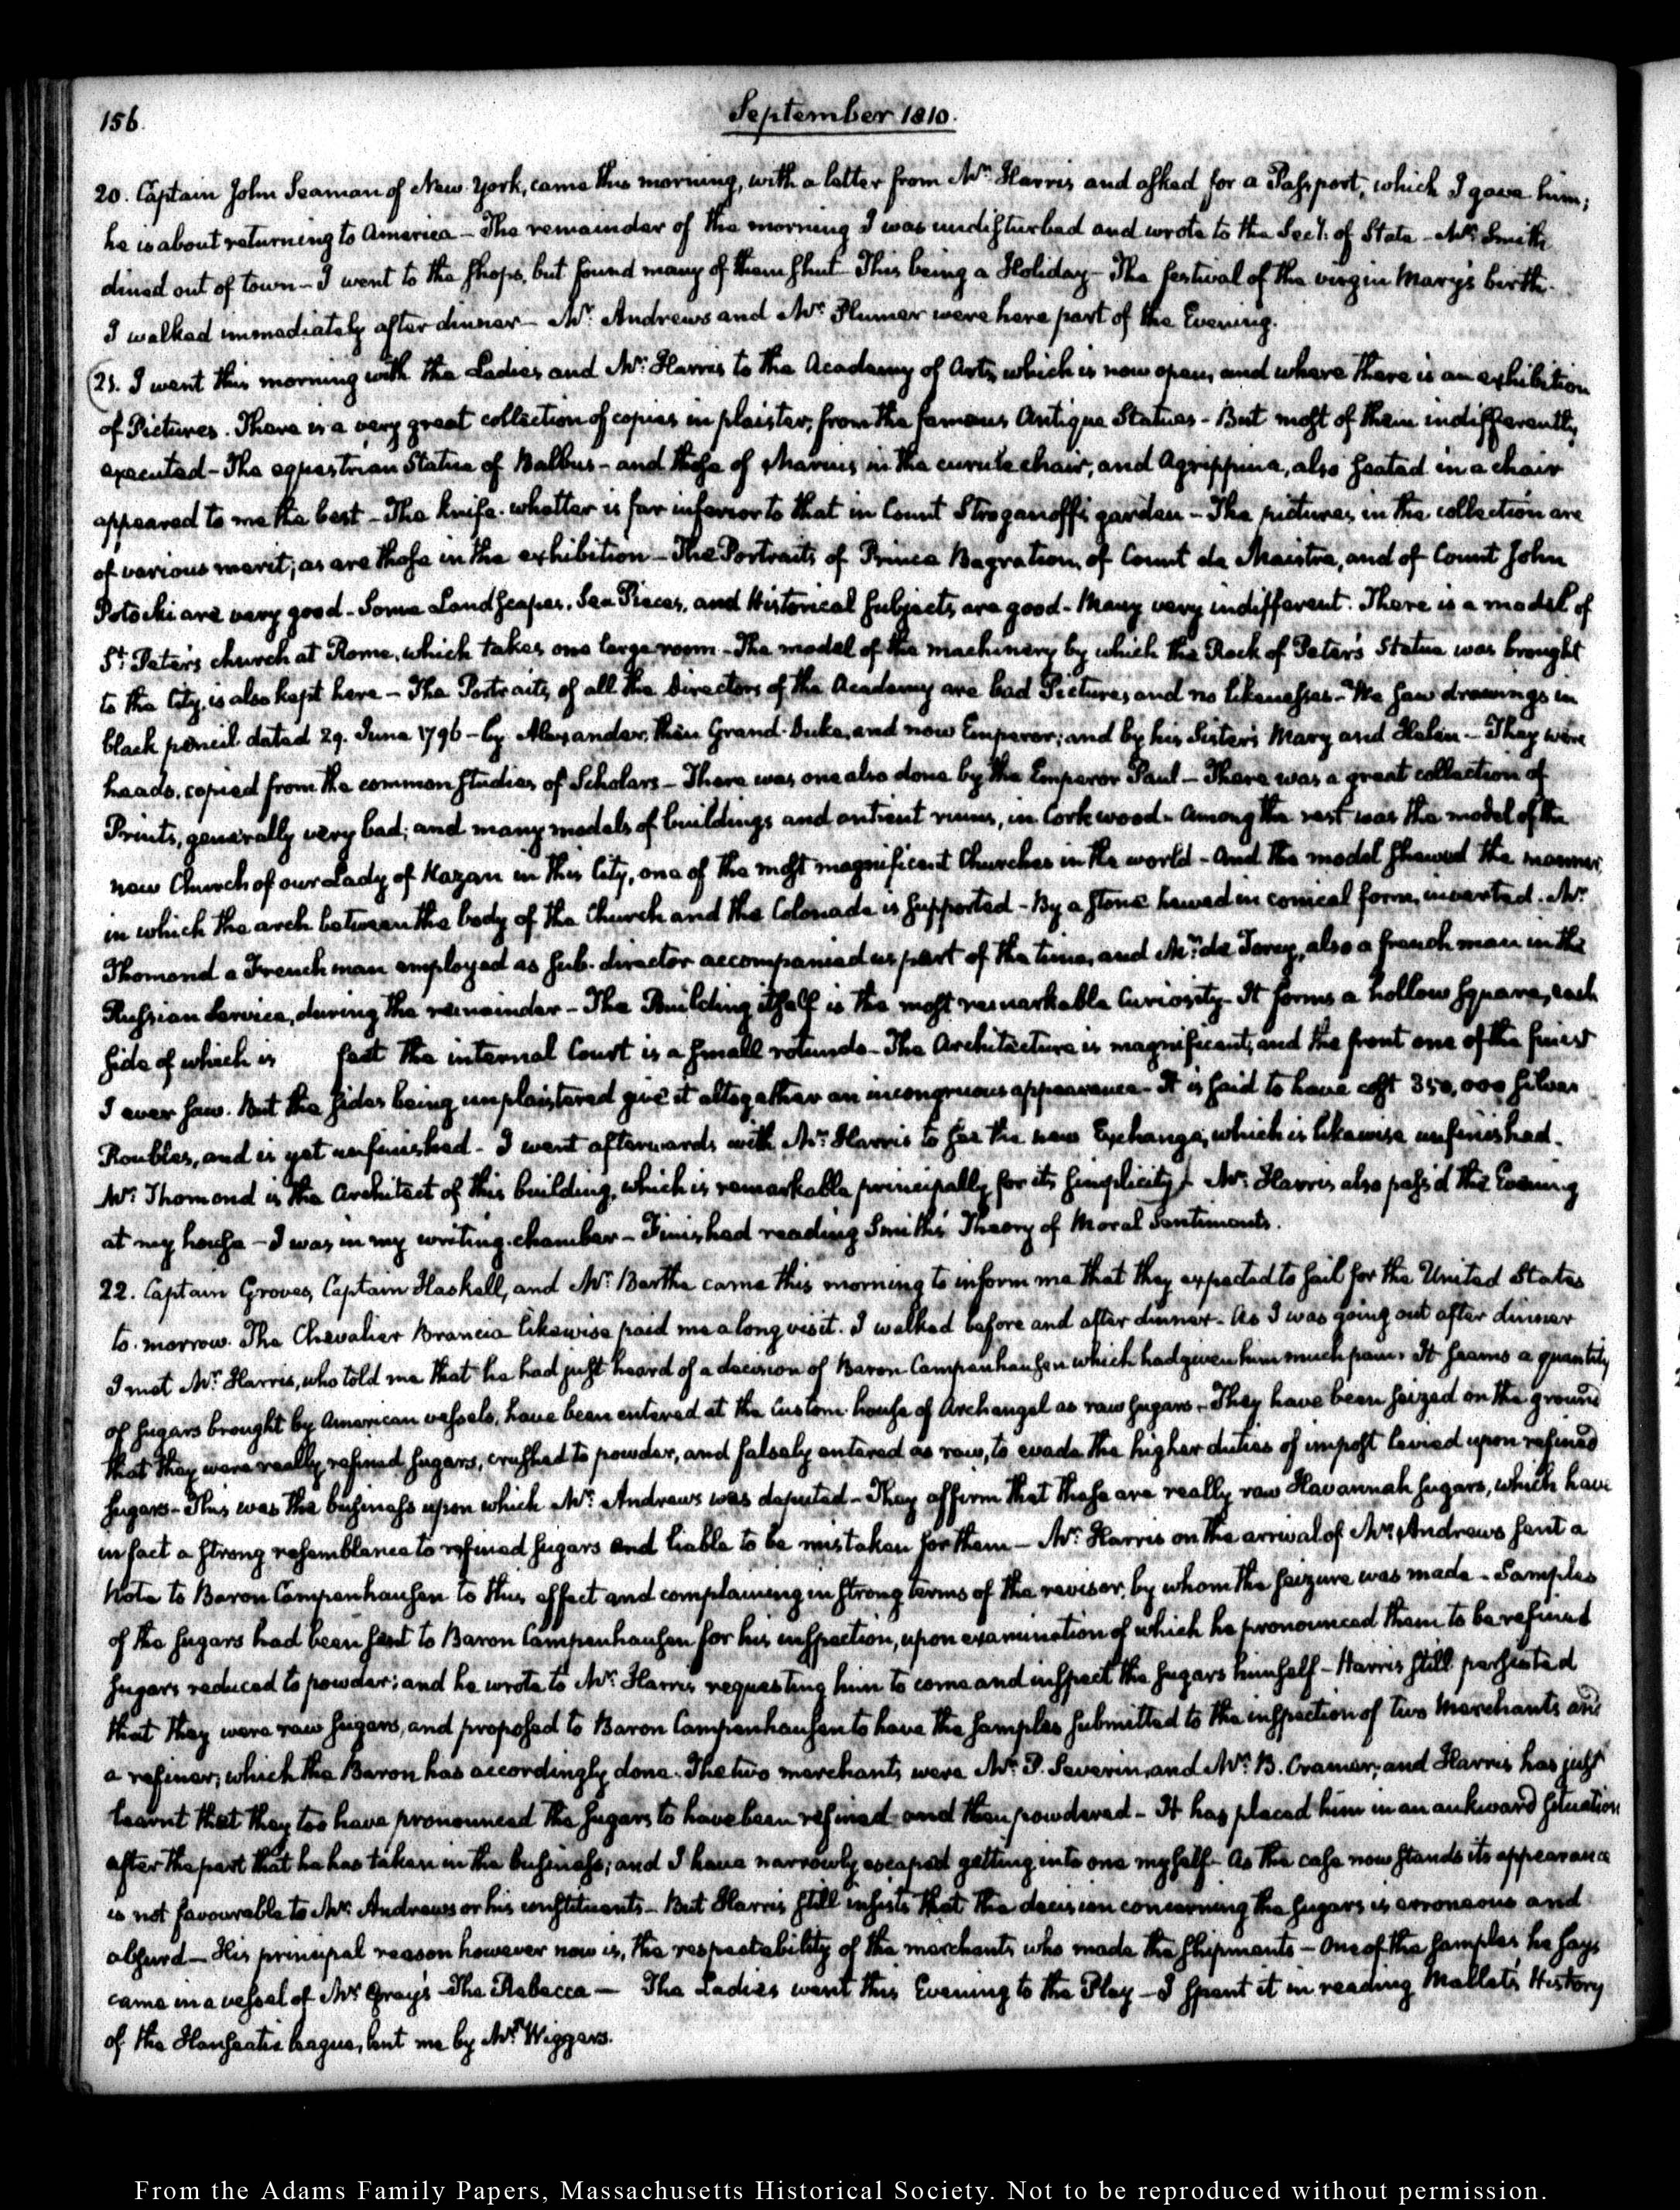 156.
September 1810.
20. Captain John Seaman of New York, came this morning, with a letter from Mr. Harris and asked for a Passport, which I gave him;
he is about returning to America – The remainder of the morning I was undisturbed and wrote to the Secy. of State – Mr. Smith
dined out of town – I went to the shops, but found many of them shut – This being a Holiday – The festival of the virgin Mary's birth.
I walked immediately after dinner – Mr. Andrews and Mr. Plumer were here part of the Evening.
21. I went this morning with the Ladies and Mr. Harris to the Academy of Arts, which is now open, and where there is an exhibition
of Pictures. There is a very great collection of copies in plaister, from the famous Antique Statues – But most of them indifferently
executed – The equestrian Statue of Balbus – and those of Marius in the curule chair, and Agrippina, also seated in a chair
appeared to me the best – The knife-whetter is far inferior to that in Count Stroganoff's garden – The pictures in the collection are
of various merit; as are those in the exhibition – The Portraits of Prince Bagration, of Count de Maistre, and of Count John
Potocki are very good – Some Landscapes, Sea Pieces, and Historical subjects are good – Many very indifferent. There is a model of
St. Peter's church at Rome, which takes one large room – The model of the machinery by which the Rock of Peter's Statue was brought
to the City, is also kept here – The Portraits of all the Directors of the Academy are bad Pictures and no likenesses – We saw drawings in
black pencil dated 29. June 1796 – by Alexander, then Grand-Duke, and now Emperor; and by his Sisters Mary and Helen – They were
heads, copied from the common studies of Scholars – There was one also done by the Emperor Paul – There was a great collection of
Prints, generally very bad; and many models of buildings and antient ruins, in Cork wood – Among the rest was the model of the
new Church of our Lady of Kazan in this City, one of the most magnificent Churches in the world – And the model shewed the manner,
in which the arch between the body of the Church and the Colonade is supported – By a stone hewed in conical form, inverted. Mr.
Thomond a Frenchman employed as sub-director accompanied us part of the time, and Mr. de Torcy, also a french man in the
Russian Service, during the remainder – The Building itself is the most remarkable Curiosity – It forms a hollow square, each
side of which is feet the internal Court is a small rotunda – The Architecture is magnificent, and the front one of the finest
I ever saw. But the sides being unplaistered give it altogether an incongruous appearance – It is said to have cost 350,000 silver
Roubles, and is yet unfinished – I went afterwards with Mr. Harris to see the new Exchange, which is likewise unfinished –
Mr. Thomond is the Architect of this building, which is remarkable principally for its simplicity. Mr. Harris also pass'd the Evening
at my house – I was in my writing-chamber – Finished reading Smith's Theory of Moral Sentiments.
22. Captain Groves, Captain Haskell, and Mr. Barthe came this morning to inform me that they expected to sail for the United States
to-morrow. The Chevalier Brancia likewise paid me a long visit. I walked before and after dinner – As I was going out after dinner
I met Mr. Harris, who told me that he had just heard of a decision of Baron Campenhausen which had given him much pain. It seems a quantity
of sugars brought by American vessels, have been entered at the Custom-house of Archangel as raw sugars – They have been seized on the ground
that they were really refined sugars, crushed to powder, and falsely entered as raw, to evade the higher duties of impost levied upon refined
sugars – This was the business upon which Mr. Andrews was deputed – They affirm that these are really raw Havannah sugars, which have
in fact a strong resemblance to refined sugars and liable to be mistaken for them – Mr. Harris on the arrival of Mr. Andrews sent a
Note to Baron Campenhausen to this effect and complaining in strong terms of the revisor, by whom the seizure was made – Samples
of the sugars had been sent to Baron Campenhausen for his inspection, upon examination of which he pronounced them to be refined
sugars reduced to powder; and he wrote to Mr. Harris requesting him to come and inspect the sugars himself – Harris still persisted
that they were raw sugars, and proposed to Baron Campenhausen to have the samples submitted to the inspection of two Merchants and
a refiner, which the Baron has accordingly done. The two merchants were Mr. P. Severin, and Mr. B. Cramer; and Harris has just
learnt that they too have pronounced the sugars to have been refined and then powdered – It has placed him in an aukward situation
after the part that he has taken in the business; and I have narrowly escaped getting into one myself – As the case now stands its appearance
is not favourable to Mr. Andrews or his constituents – But Harris still insists that the decision concerning the sugars is erroneous and
absurd – His principal reason however now is, the respectability of the merchants who made the shipments – One of the samples he says
came in a vessel of Mr. Gray's – The Rebecca – The Ladies went this Evening to the Play – I spent it in reading Mallet's History
of the Hanseatic league, lent me by Mr. Wiggers.
From the Adams Family Papers, Massachusetts Historical Society. Not to be reproduced without permission.